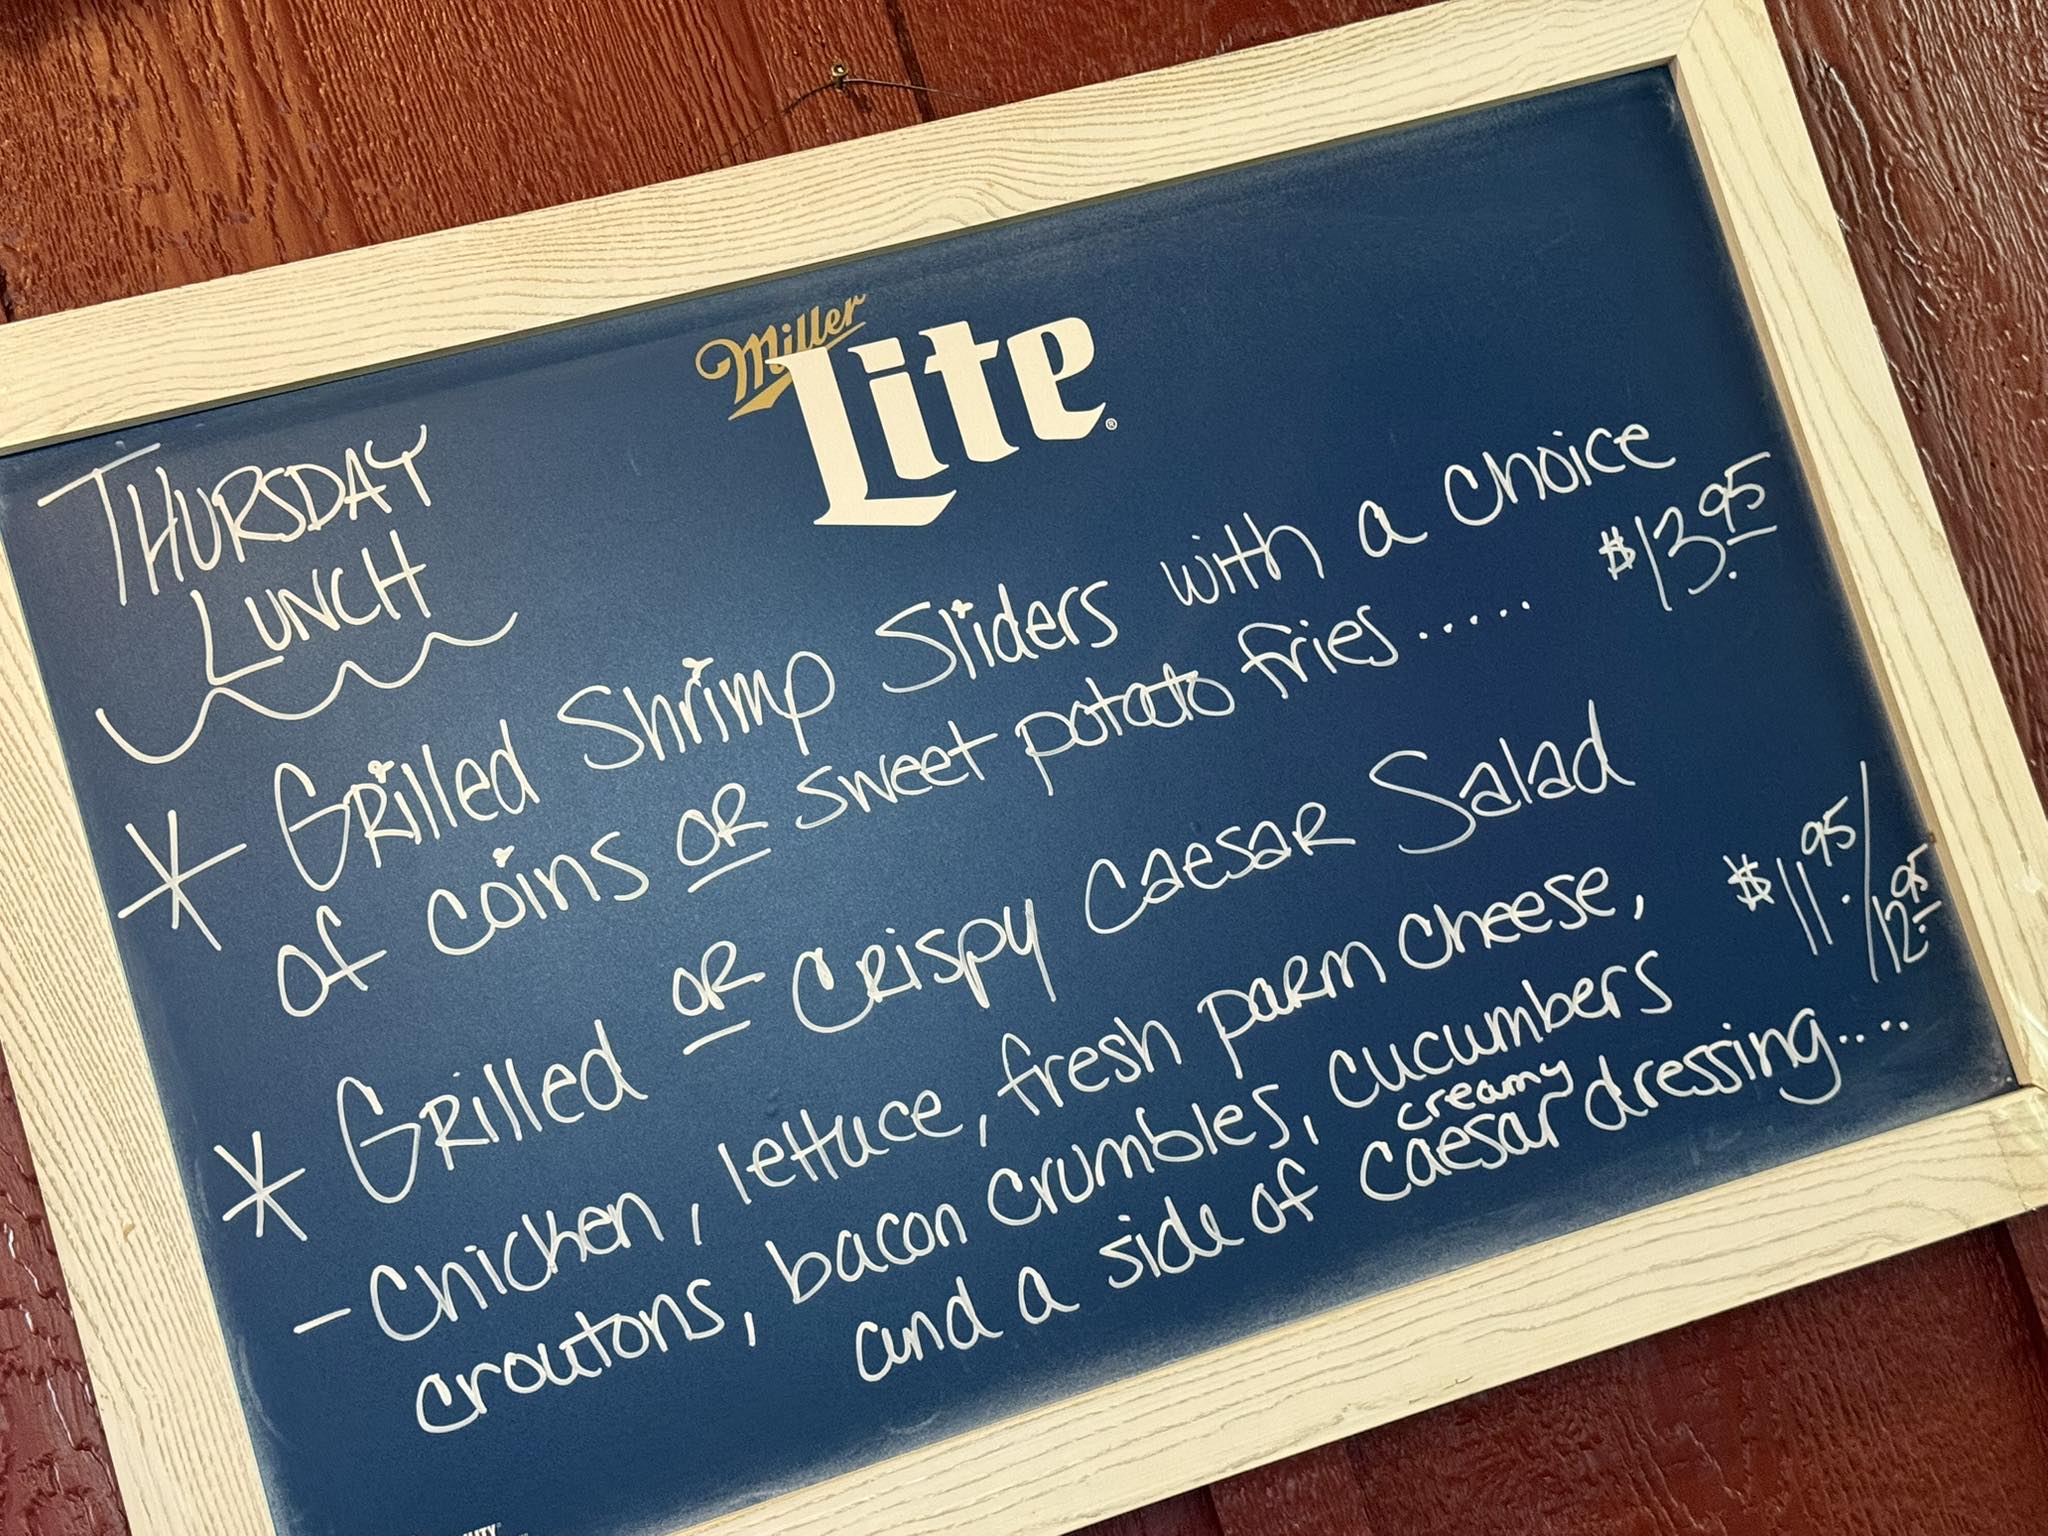 Miller
Lite®
THURSDAY
LUNCH
* Grilled Shrimp Sliders with a choice
of coins OR sweet potato fries..... $13.95
* Grilled OR Crispy Caesar Salad
- Chicken, lettuce, fresh parm cheese, $11.95/12.95
croutons, bacon crumbles, cucumbers
creamy
and a side of caesar dressing....